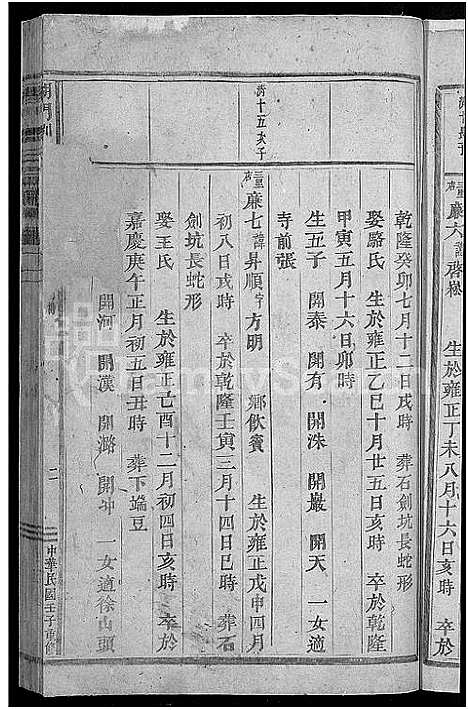 廉六 諱啓松 生於雍正丁未八月十六日亥時 卒於
乾隆癸卯七月十二日戌時 葬石劍坑長蛇形
娶駱氏 生於雍正乙巳十月廿五日亥時 卒於乾隆
甲寅五月十六日卯時
生五子 開泰 開有 開洙 開嚴 開天 一女適
寺前張
濟十五次子
廉七 諱昇順字方明 鄉飲賓 生於雍正戊申四月
初八日戌時 卒於乾隆壬寅三月十四日巳時 葬石
劍坑長蛇形
娶王氏 生於雍正己酉十二月初四日亥時 卒於
嘉慶庚午正月初五日丑時 葬下端豆
開河 開漢 開潞 開冲 一女適徐山頭
二
中華民國壬子重修